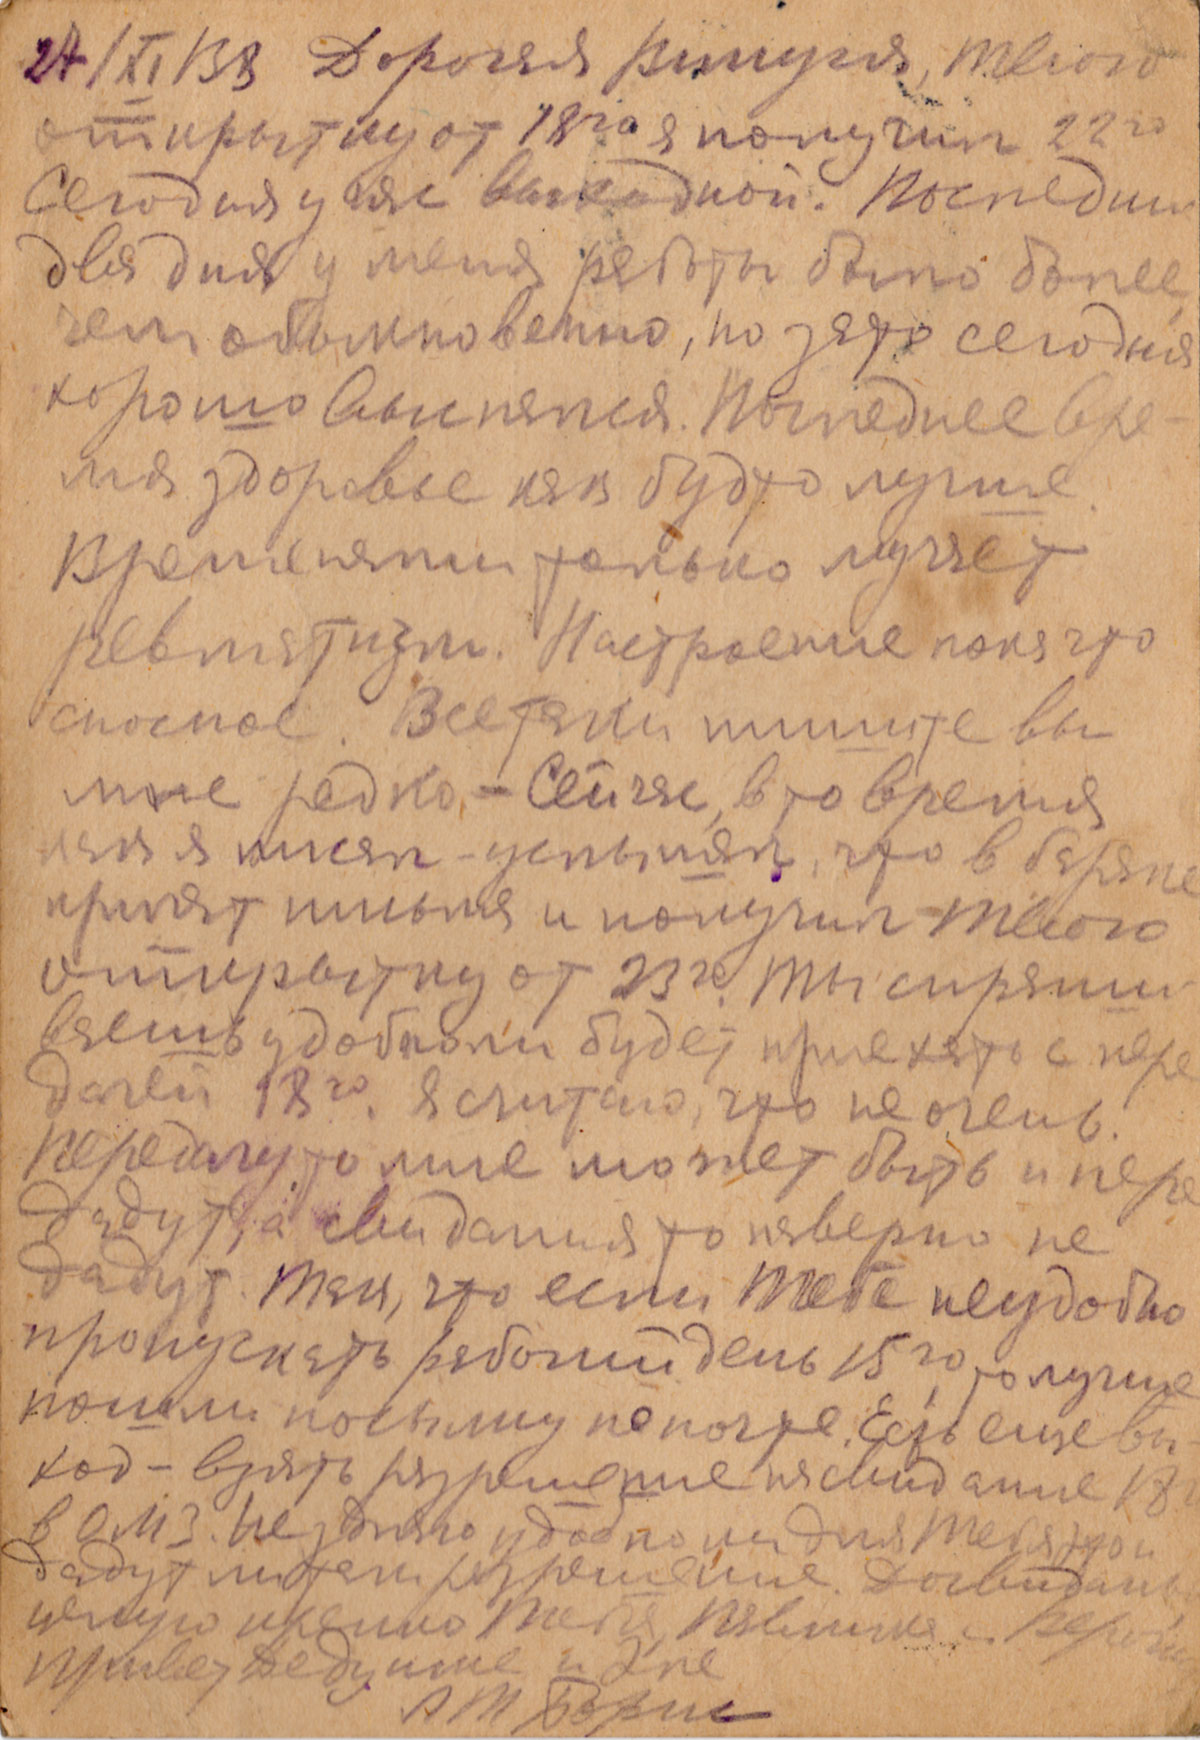 24/XI 33 Дорогая Римуся, Твою
открытку от 18го я получил 22го
Сегодня у нас выходной. Последние
два дня у меня работы было более,
чем обыкновенно, но зато сегодня
хорошо выспался. Последнее вре-
мя здоровье как будто лучше.
Временами только мучает
ревматизм. Настроение пока что
сносное. Всетаки пишите вы
мне редко – Сейчас, в то время
как я писал – услышал, что в бараке
кричат письма и получил Твою
открытку от 23го. Ты спраши-
ваешь удобно ли будет приехать с пере
дачей 18го. Я считаю, что не очень.
Передачу то мне может быть и пере
дадут, а свидания то наверно не
дадут. Так, что если Тебе неудобно
пропускать рабочий день 15го, то лучше
пошли посылку по почте. Есть еще вы-
ход – взять разрешение на свидание 18
в ОМЗ. Не знаю удобно ли для Тебя это и
дадут ли теби разрешение. Досвидань
целую крепко Тебя, Павлика и
Привет Дедушке и
Борис